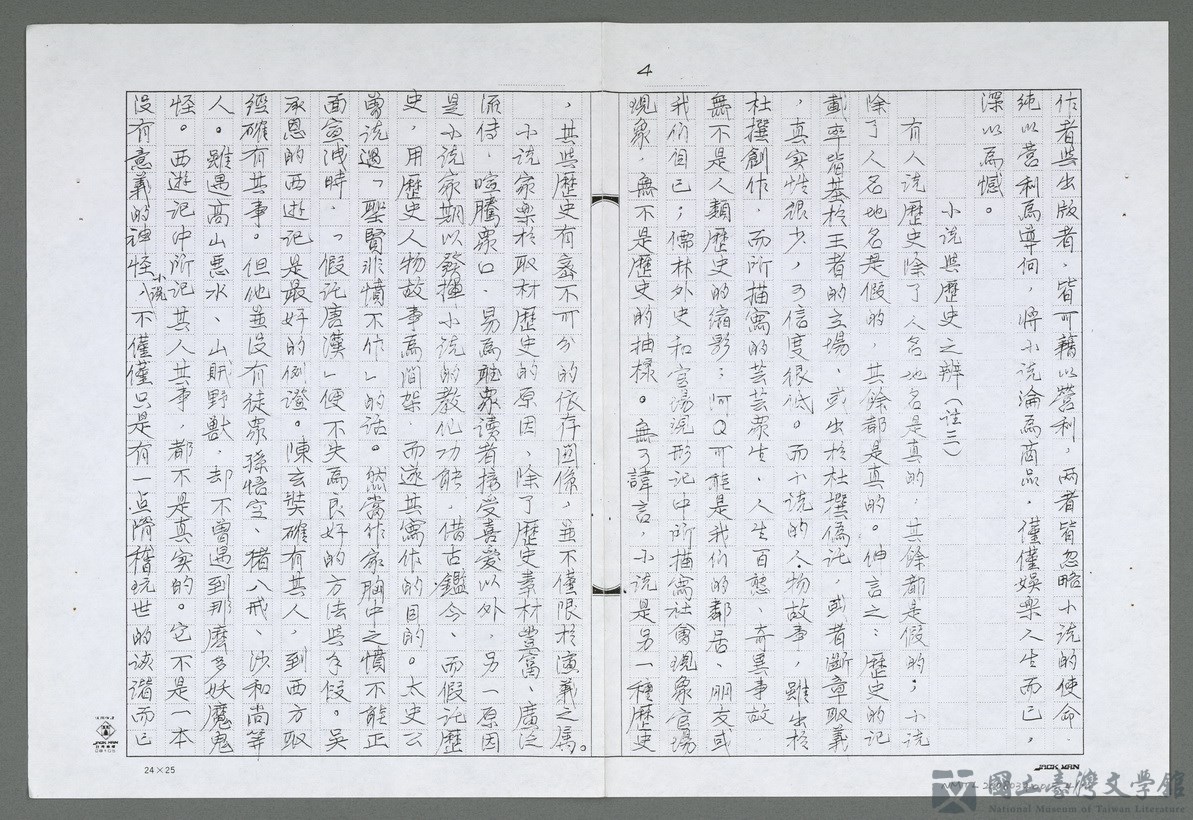 4
作者與出版者，皆可藉以營利，兩者皆忽略小說的使命．
純以營利為導向，將小說淪為商品．僅僅娛樂人生而已，
深以為憾。
小說與歷史之辨（註三）
有人說歷史除了人名地名是真的．其餘都是假的；小說
除了人名地名是假的，其餘都是真的。伸言之：歷史的記
載率皆基於王者的立場、或出於杜撰偽託，或者斷章取義
，真實性很少，可信度很低。而小說的人物故事，雖出於
杜撰創作．而所描寫的芸芸眾生．人生百態、奇異事故．
無不是人類歷史的縮影：阿Q可能是我們的鄰居、朋友或
我們自己；儒林外史和官場現形記中所描寫社會現象官場
現象．無不是歷史的抽樣。無可諱言，小說是另一種歷史
，其與歷史有密不可分的依存關係，並不僅限於演義之屬。
小說家樂於取材歷史的原因、除了歷史素材豐富、廣泛
流傳．喧騰眾口．易為聽眾讀者接受喜愛以外，另一原因
是小說家期以發揮小說的教化功能．借古鑑今、而假託歷
史，用歷史人物故事為間架．而遂其寓作的目的。太史公
曾說過「聖賢非憤不作」的話。然當作家胸中之憤不能正
面宣洩時．「假託唐漢」便不失為良好的方法與手段。吳
承恩的西遊記是最好的例證。陳玄奘確有其人，到西方取
經確有其事。但他並沒有徒眾孫悟空、猪八戒、沙和尚等
人。雖遇高山惡水、山賊野獸．却不曾遇到那麼多妖魔鬼
怪。西遊記中所記其人其事，都不是真實的。它不是一本
沒有意義的神怪小說，不僅僅只是有一点滑稽玩世的詼諧而已
24×25
JACK MAN
國立臺灣文學館
National Museum of Taiwan Literature